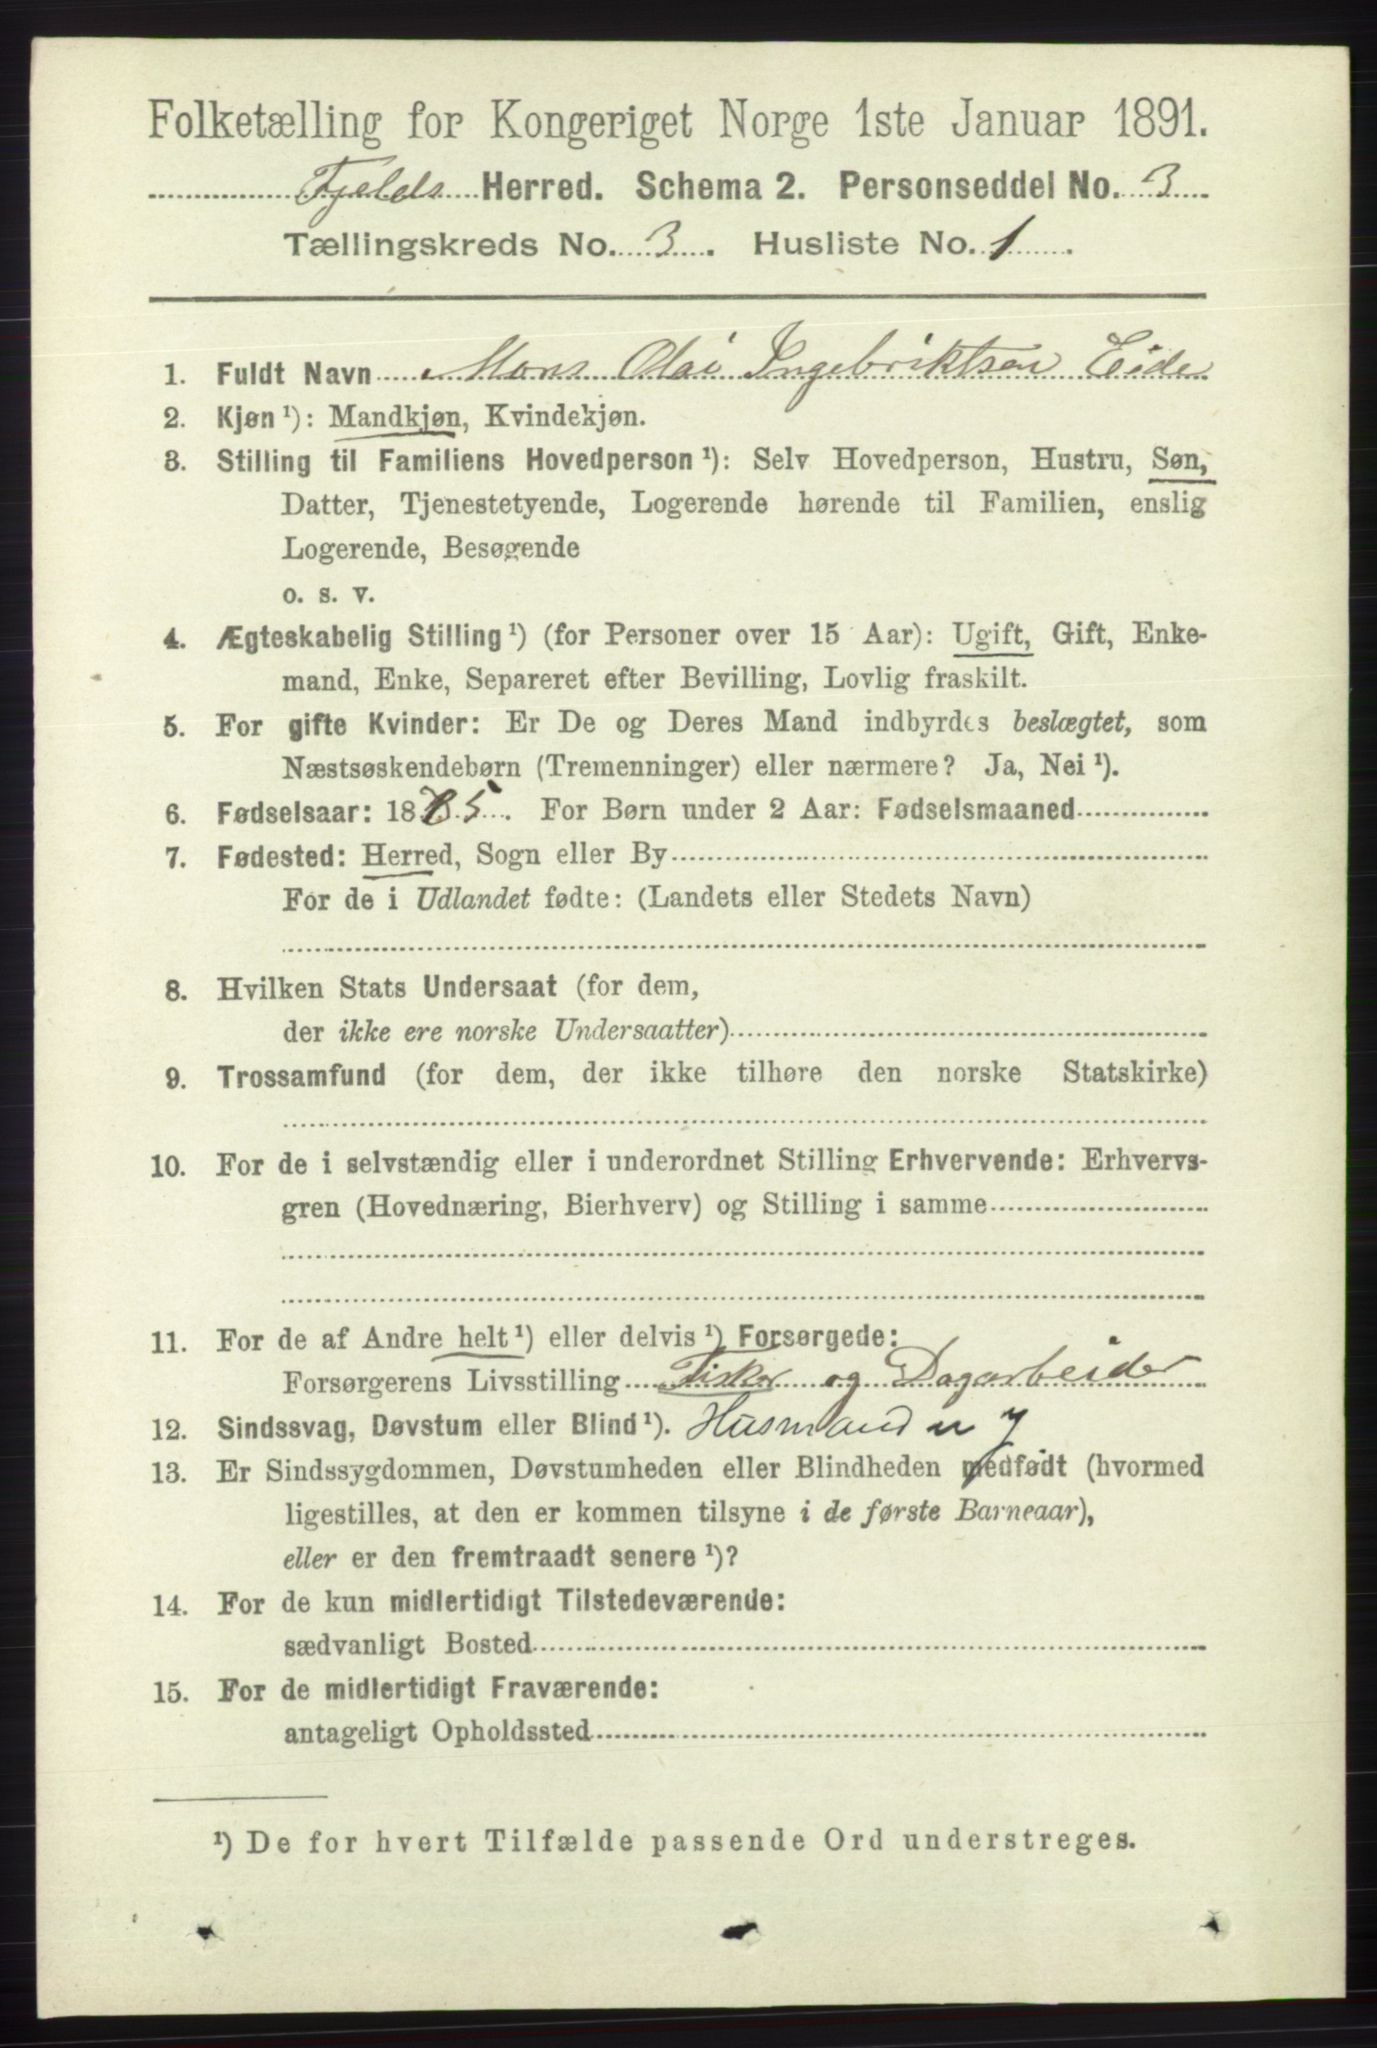 Folketælling for Kongeriget Norge 1ste Januar 1891.
Fjelds Herred. Schema 2. Personseddel No. 3
Tællingskreds No. 3. Husliste No. 1
1. Fuldt Navn Mons Olai Ingebriktsen Eide
2. Kjøn¹): Mandkjøn, Kvindekjøn.
3. Stilling til Familiens Hovedperson¹): Selv Hovedperson, Hustru, Søn,
Datter, Tjenestetyende, Logerende hørende til Familien, enslig
Logerende, Besøgende
o. s. v.
4. Ægteskabelig Stilling¹) (for Personer over 15 Aar): Ugift, Gift, Enke-
mand, Enke, Separeret efter Bevilling, Lovlig fraskilt.
5. For gifte Kvinder: Er De og Deres Mand indbyrdes beslægtet, som
Næstsøskendebørn (Tremenninger) eller nærmere? Ja, Nei¹).
6. Fødselsaar: 1885. For Børn under 2 Aar: Fødselsmaaned
7. Fødested: Herred, Sogn eller By
For de i Udlandet fødte: (Landets eller Stedets Navn)
8. Hvilken Stats Undersaat (for dem,
der ikke ere norske Undersaatter)
9. Trossamfund (for dem, der ikke tilhøre den norske Statskirke)
10. For de i selvstændig eller i underordnet Stilling Erhvervende: Erhvervs-
gren (Hovednæring, Bierhverv) og Stilling i samme
11. For de af Andre helt¹) eller delvis¹) Forsørgede:
Forsørgerens Livsstilling Fisker og Dagarbeider
12. Sindssvag, Døvstum eller Blind¹). Husmand u J
13. Er Sindssygdommen, Døvstumheden eller Blindheden medfødt (hvormed
ligestilles, at den er kommen tilsyne i de første Barneaar),
eller er den fremtraadt senere¹)?
14. For de kun midlertidigt Tilstedeværende:
sædvanligt Bosted
15. For de midlertidigt Fraværende:
antageligt Opholdssted
¹) De for hvert Tilfælde passende Ord understreges.